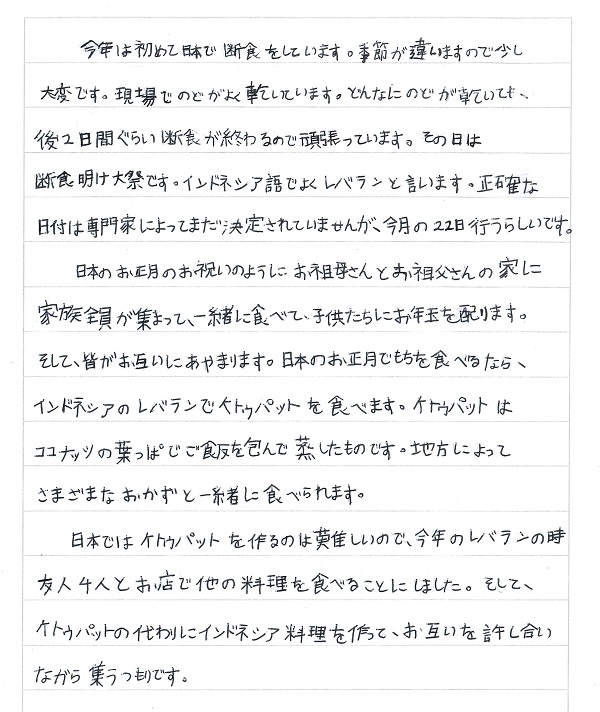 今年は初めて日本で断食をしています。季節が違いますので少し
大変です。現場でのどがよく乾いています。どんなにのどが乾いても、
後2日間ぐらい断食が終わるので頑張っています。その日は
断食明け大祭です。インドネシア語でよくレバランと言います。正確な
日付は専門家によってまだ決定されていませんが、今月の22日行うらしいです。
日本のお正月のお祝いのように お祖母さんとお祖父さんの家に
家族全員が集まって、一緒に食べて、子供たちにお年玉を配ります。
そして、皆がお互いにあやまります。日本のお正月でもちを食べるなら、
インドネシアのレバランでケトゥパットを食べます。ケトゥパットは
ココナッツの葉っぱでご飯を包んで蒸したものです。地方によって
さまざまなおかずと一緒に食べられます。
日本ではケトゥパットを作るのは難しいので、今年のレバランの時
友人4人とお店で他の料理を食べることにしました。そして、
ケトゥパットの代わりにインドネシア料理を作って、お互いを許し合い
ながら集うつもりです。